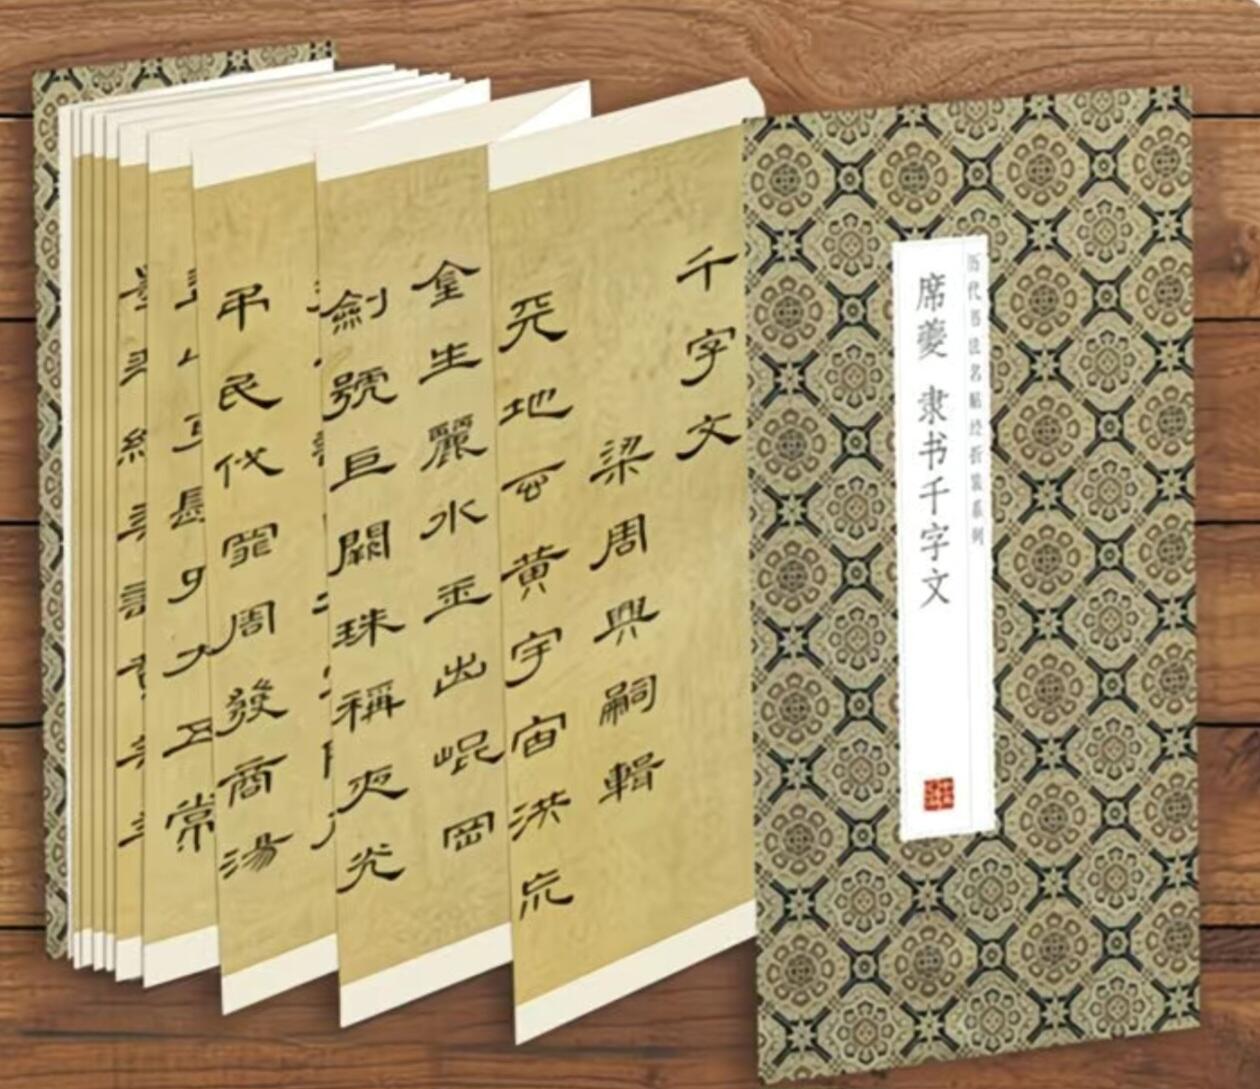 历代书法名帖经折装系列
席夔 隶书千字文
千字文
梁周興嗣輯
天地玄黄宇宙洪荒
金生麗水玉出崐岡
劍號巨闕珠稱夜光
弔民伐罪周發商湯
常